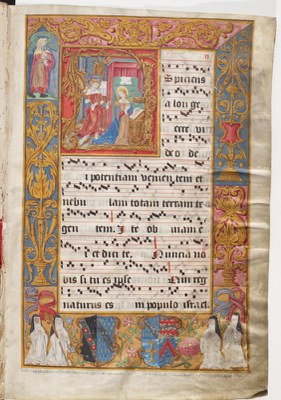 Spiciens
a lon ge
ecce vi
deo de
i potentiam venien tem et
nebu lam totam terram te
gen tem. I te ob viam e
i et dici te. Nuncia no
bis si tu es ipse Qui reg
naturus es in populo israel.